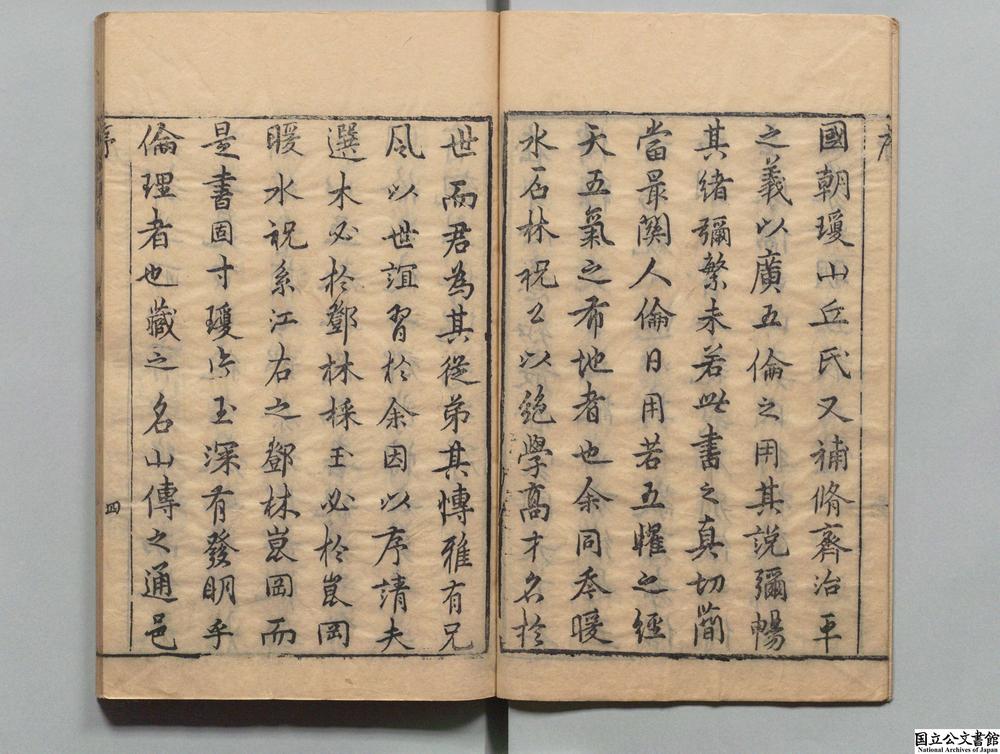 序
國朝瓊山丘氏又補脩齊治平
之義以廣五倫之用其說彌暢
其緒彌繁未若此書之真切簡
當最關人倫日用若五曜之經
天五氣之布地者也余同年暖
水石林祝公以絕學高才名於
世而君為其從弟其博雅有兄
風以世誼習於余因以序請夫
選木必於鄧林採玉必於崑岡
暖水祝系江右之鄧林崑岡而
是書固寸瓊片玉深有發明乎
倫理者也藏之名山傳之通邑
序
四
国立公文書館
National Archives of Japan